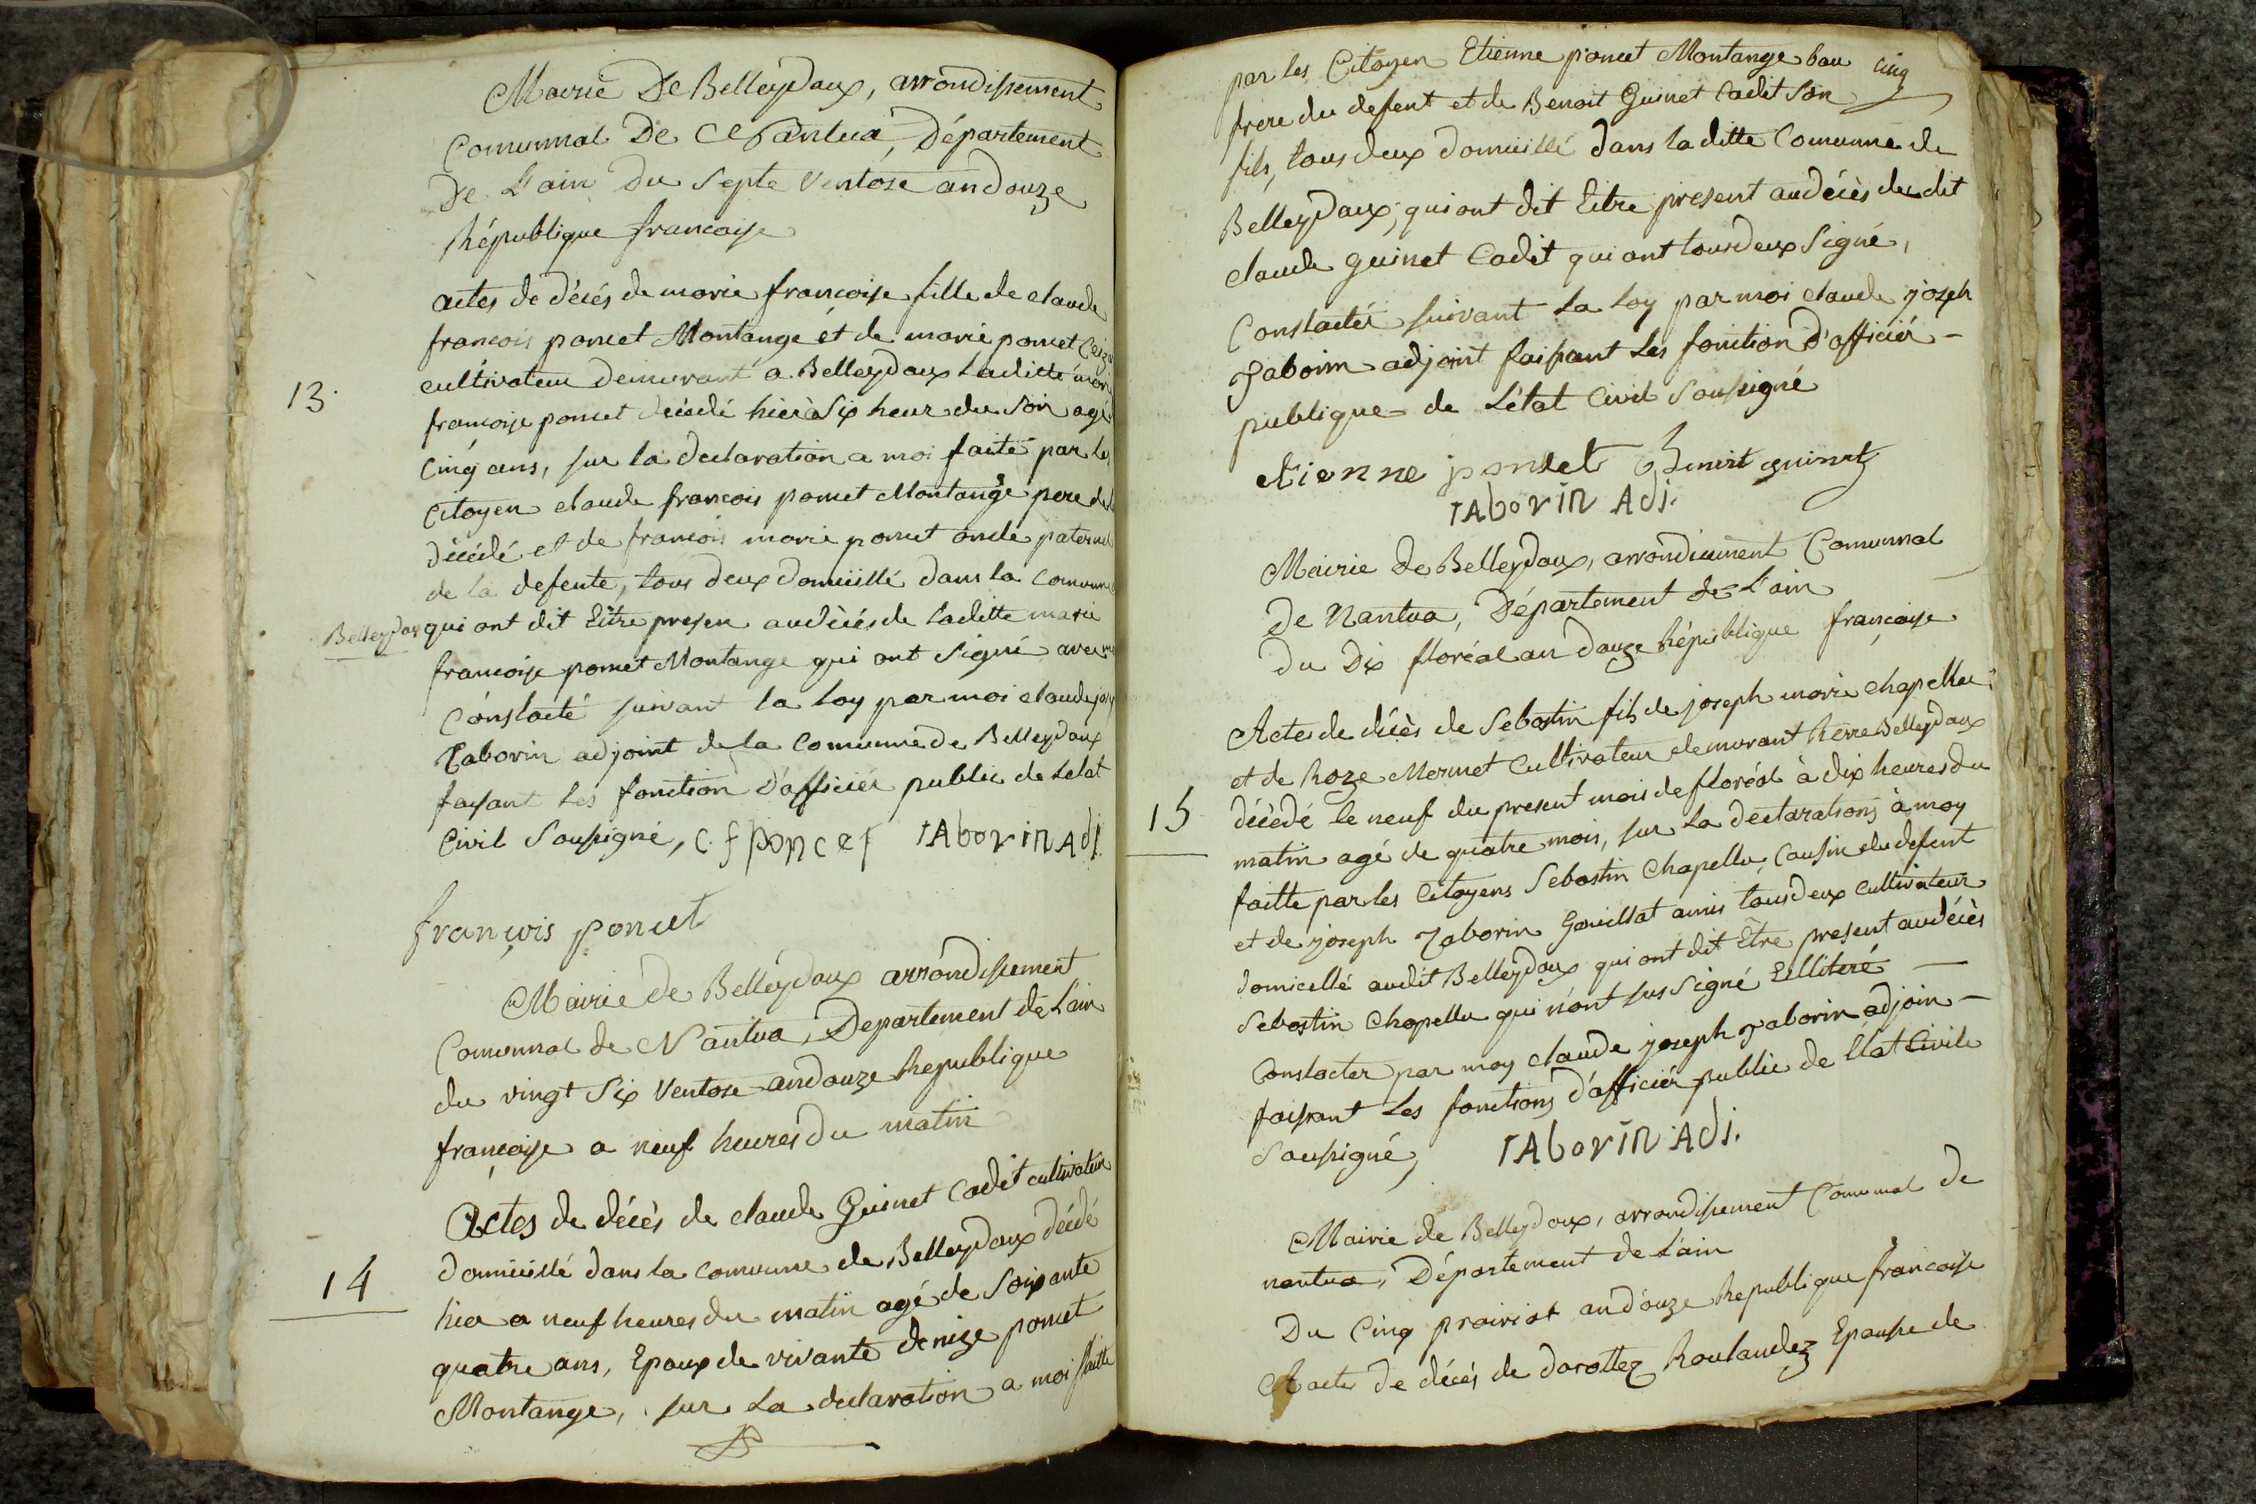 Mairie De Belleydoux, arrondissement
Comunnal De Nantua, Département
De L'ain Du Septe Ventose an douze
République francaise
actes de décés de marie francoise fille de claude
francois poncet Montange et de marie poncet
13.
cultivateur demeurant a Belleydoux Laditte
francoise poncet décédé hier à Six heur du Soir agé
Cinq ans, sur la declaration a moi faite par les
Citoyen claude francois poncet Montange pere de
décédé et de francois marie poncet oncle paternel
de la defente, tous deux domicillé dans la Comunne
Belleydoux qui ont dit Eitre presen au décés de Laditte marie
francoise poncet Montange qui ont Signé avec
Constacté suivant la loy par moi claude
Taborin adjoint de la Comunne de Belleydoux
faisant Les fonction D'afficier public de Letat
Civil Soussigné, C. f poncet TAborin Adj.
françois poncet
Mairie de Belleydoux arrondissement
Comunnal de Nantua, Departement de L'ain
du vingt Six Ventose an douze Republique
françaisse a neuf heures du matin
Actes de décès de claude Guinet Cadet cultivateur
14
domicillé dans la comunne de Belleydoux décédé
hier a neuf heures du matin agé de Soixante
quatre ans, Epoux de vivante denize poncet
Montange, sur La declaration a moi faitte
par les Citoyen Etienne poncet Montange bau
cinq
frere du defent et de Benoit Guinet Cadit Son
fils, tous deux domicillé dans la ditte Comunne de
Belleydoux, qui ont dit Eitre present au décès du dit
claude guinet Cadit qui ont tous deux Signé,
Constactér suivant La Loy par moi claude joseph
Taborin adjoint faissant Les fonction d'afficiér -
publique de L'état Civil Soussigné
etienne ponset Benoit guinet
TAborin Adj.
Mairie de Belleydoux, arrondicement Comunnal
De Nantua, Département de L'ain
du Dix floréal an Douze République française
Actes de décès de Sebastin fils de joseph marie Chapellu
et de Roze Mermet Cultivateur demurant Belleydoux
15
décèdé le neuf du present mois de floréal à dix heures du
matin agé de quatre mois, sur La declarations à moy
faitte par les Citoyens Sebastin Chapellu, Cousin du defunt
et de joseph Taborin Gouillat amis tous deux Cultivateur
domicellé audit Belleydoux qui ont dit Etre present au décès
Sebastin Chapellu qui n'ont sus Signé Elliteré
Constacter par moy claude joseph Taborin adjoin -
faissant Les fonctions d'afficiér public de l'état Civile
Soussigné, TAborin Adj.
Mairie de Belleydoux, arrondissement Comunnal de
nantua, Département de L'ain
Du Cinq prairial an d'ouze Republique francaise
Acte de décés de Darottez Roulandez Epousse de